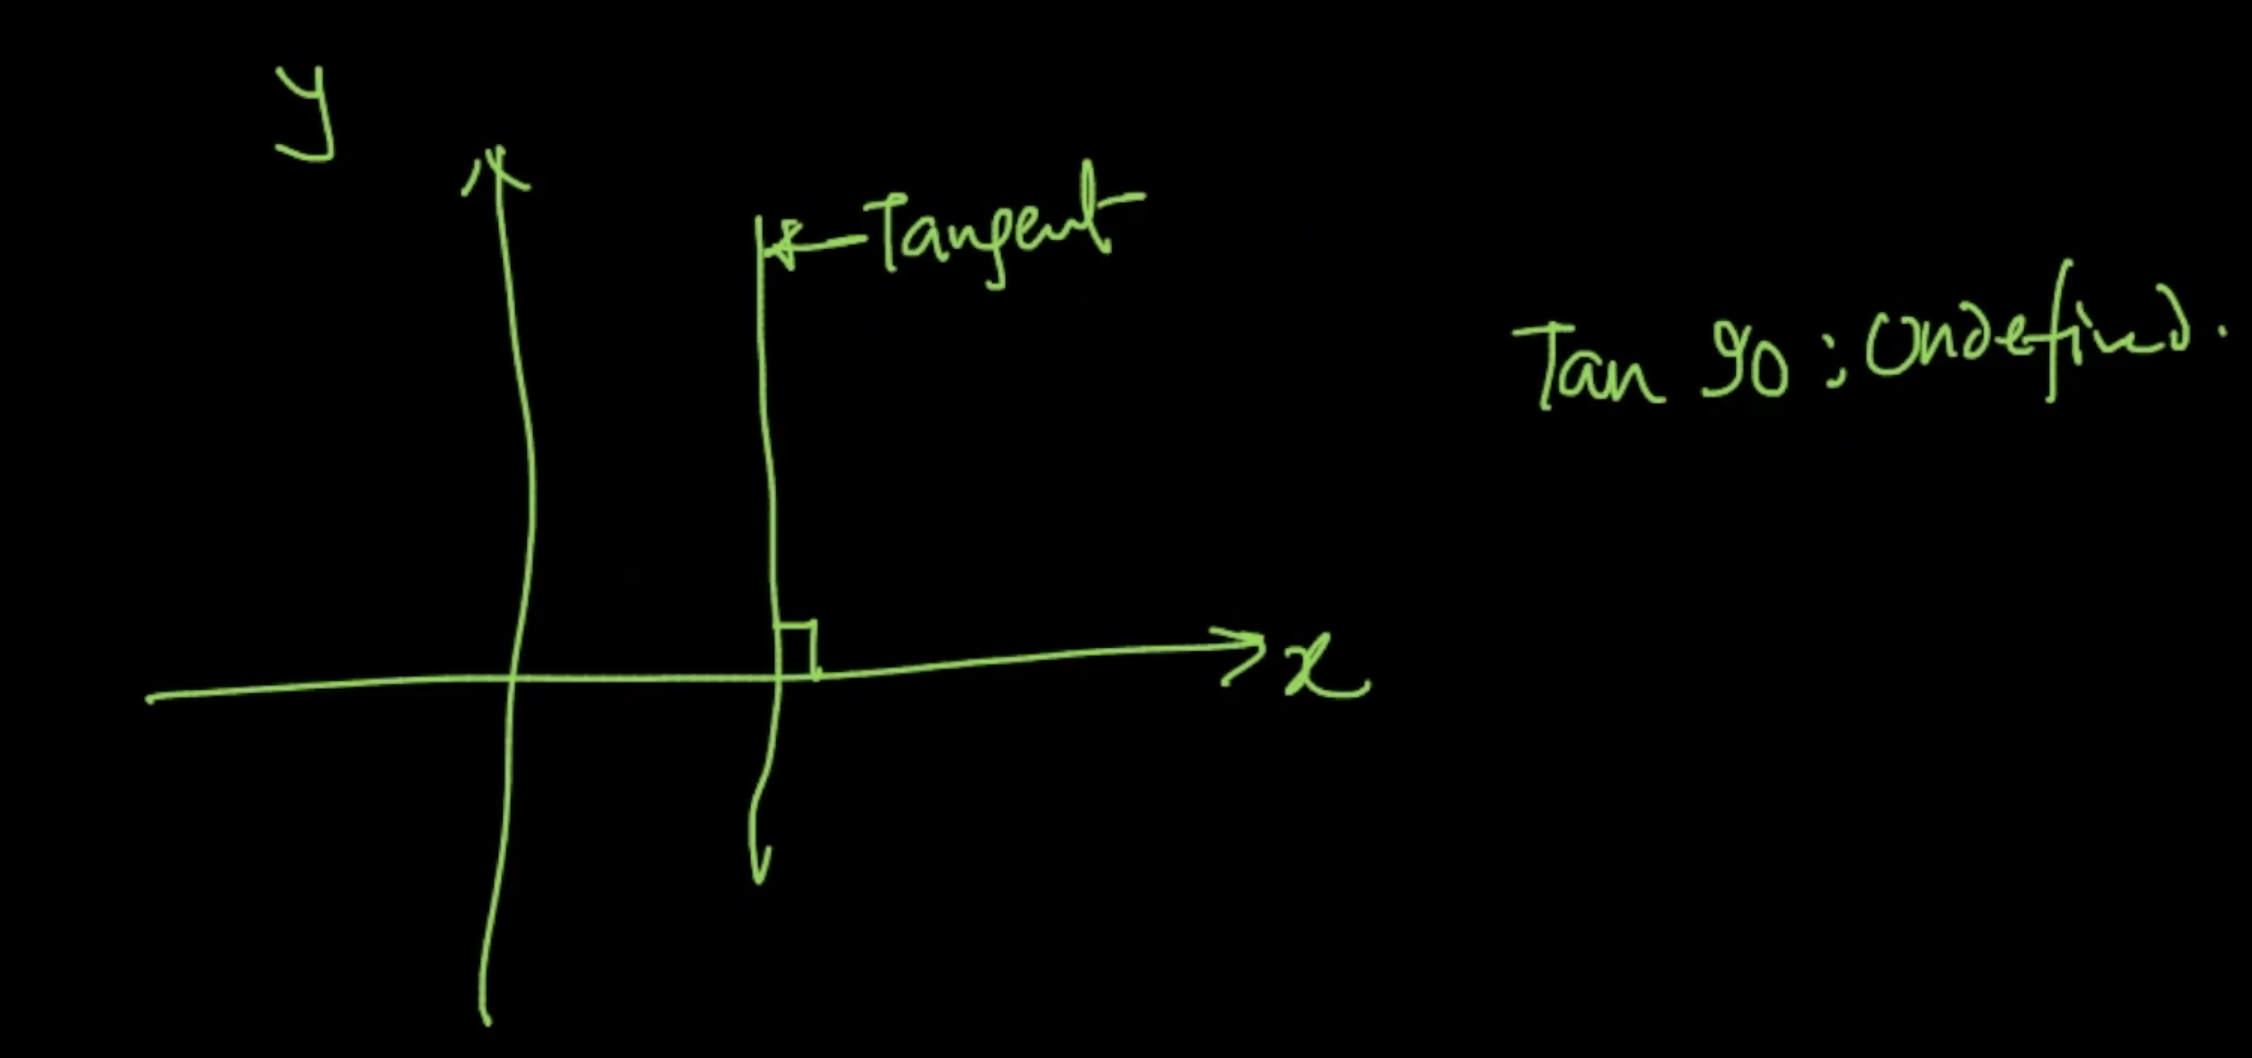 y
Tangent
Tan 90 : Undefined.
x